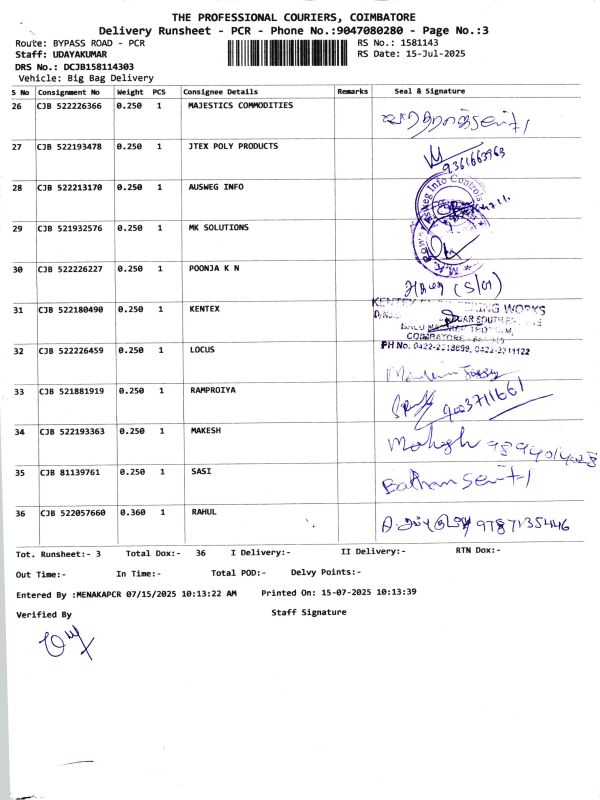 THE PROFESSIONAL COURIERS, COIMBATORE
Delivery Runsheet - PCR - Phone No.:9047080280 - Page No.:3
Route: BYPASS ROAD - PCR RS No.: 1581143
Staff: UDAYAKUMAR RS Date: 15-Jul-2025
DRS No.: DCJB158114303
Vehicle: Big Bag Delivery
S No Consignment No Weight PCS Consignee Details Remarks Seal & Signature
26 CJB 522226366 0.250 1 MAJESTICS COMMODITIES
27 CJB 522193478 0.250 1 JTEX POLY PRODUCTS
9361663963
28 CJB 522213170 0.250 1 AUSWEG INFO
29 CJB 521932576 0.250 1 MK SOLUTIONS
30 CJB 522226227 0.250 1 POONJA K N
31 CJB 522180490 0.250 1 KENTEX
WORKS
COIMBATORE
PH No. 0422-2318899, 0422-2311122
32 CJB 522226459 0.250 1 LOCUS
33 CJB 521881919 0.250 1 RAMPROIYA
9003711661
34 CJB 522193363 0.250 1 MAKESH
Mahesh 9894014028
35 CJB 81139761 0.250 1 SASI
36 CJB 522057660 0.360 1 RAHUL
9787135446
Tot. Runsheet:- 3 Total Dox:- 36 I Delivery:- II Delivery:- RTN Dox:-
Out Time:- In Time:- Total POD:- Delvy Points:-
Entered By :MENAKAPCR 07/15/2025 10:13:22 AM Printed On: 15-07-2025 10:13:39
Verified By Staff Signature